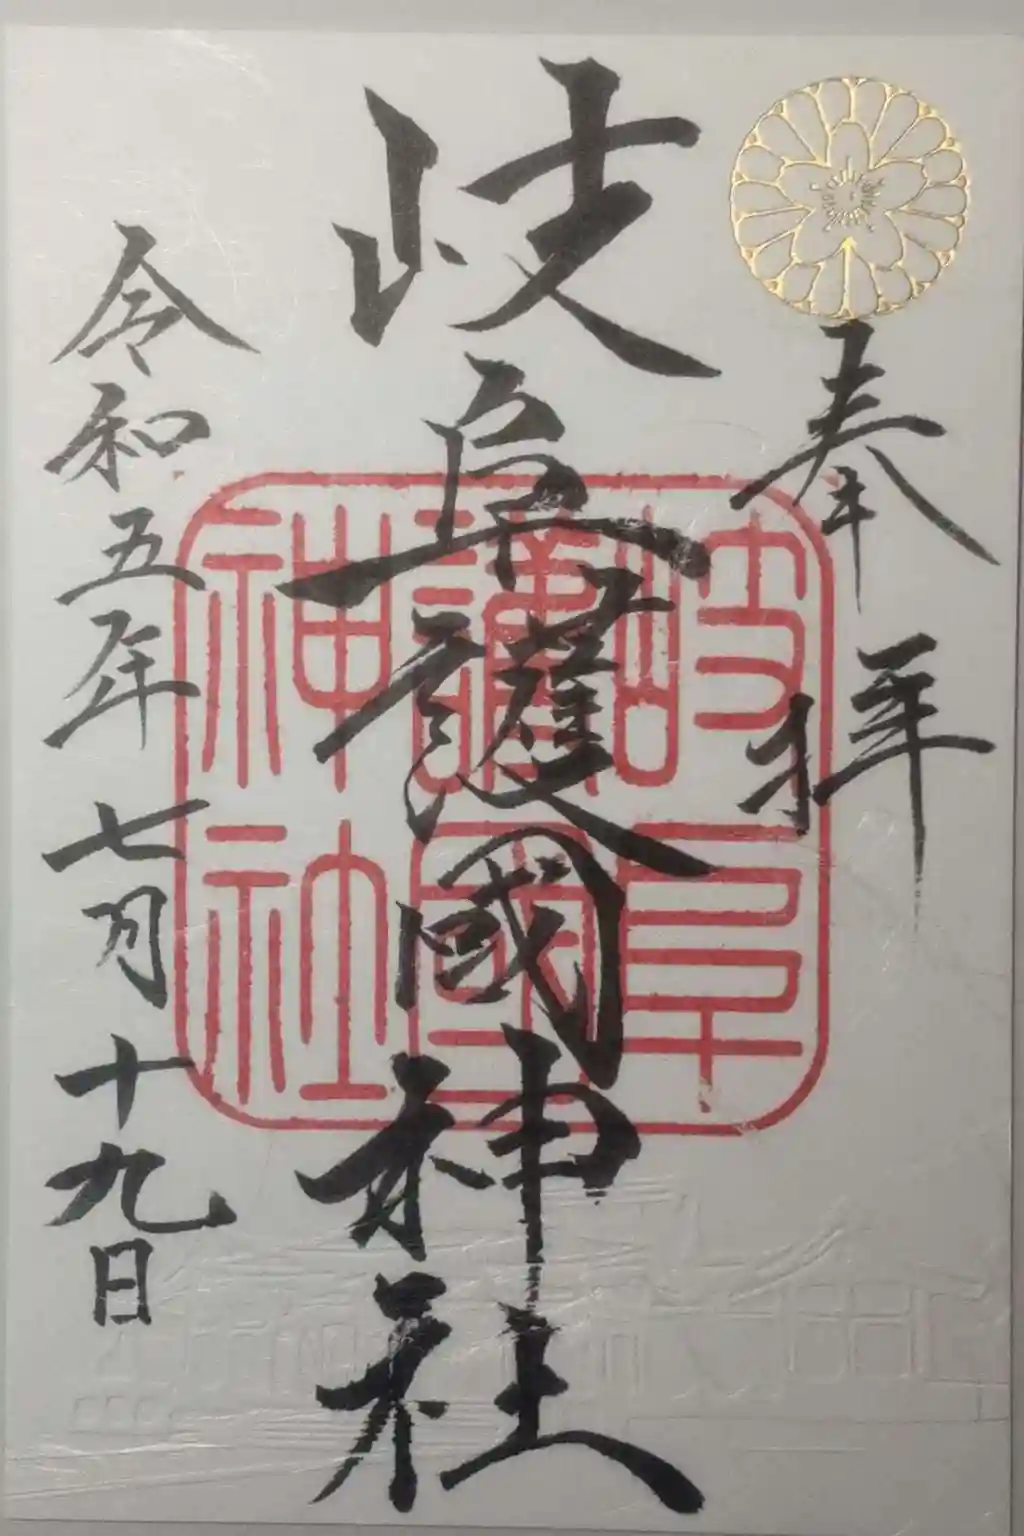 奉拝
岐阜護國神社
岐阜
護國
神社
令和五年七月十九日